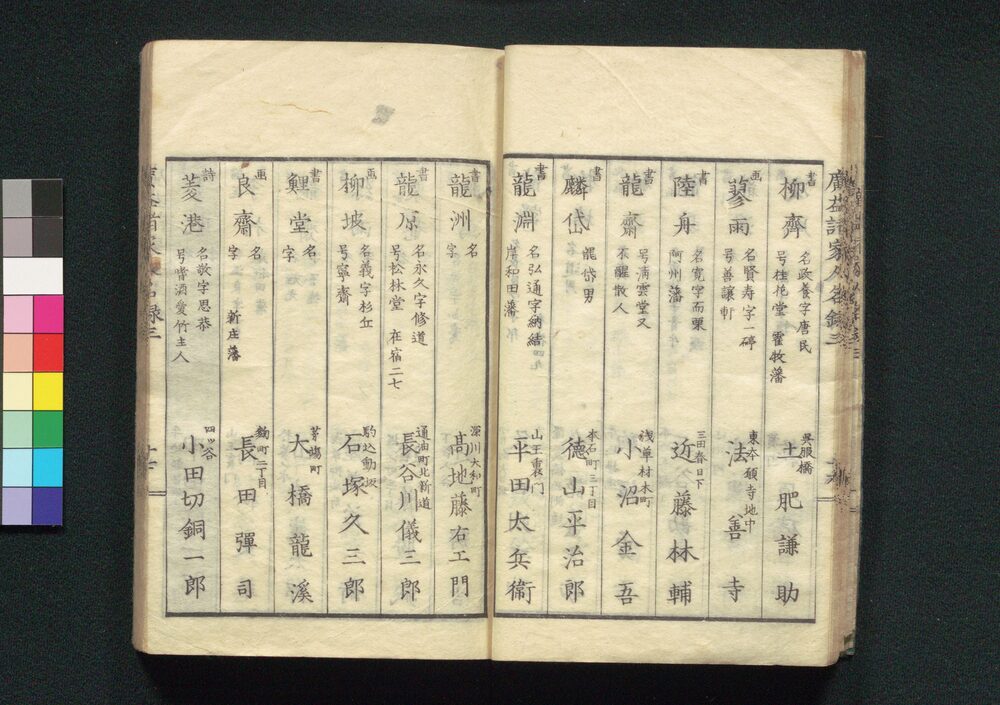 書
柳齊
名政養字唐民
号桂花堂 霍牧藩
呉服橋
土肥謙助
画
蓼雨
名賢寿字一碲
号善讓軒
東本願寺地中
法善寺
書
陸舟
名寛字而栗
阿州藩
三田春日下
近藤林輔
書
龍齋
号淸雲堂又
不醒散人
浅草材木町
小沼金吾
書
麟岱
龍岱男
本石町三丁目
德山平治郎
書
龍淵
名弘通字納結
岸和田藩
山王裏門
平田太兵衞
書
龍洲
名
字
深川大和町
高地藤右エ門
書
龍原
名永久字修道
号松林堂 在宿二七
通油町北新道
長谷川儀三郎
画
柳坡
名義字杉丘
号寧齋
駒込動坂
石塚久三郎
書
鯉堂
名
字
茅場町
大橋龍溪
画
良齋
名
字 新庄藩
麹町二丁目
長田彈司
詩
菱港
名敬字思恭
号嘗酒愛竹主人
四ツ谷
小田切銅一郎